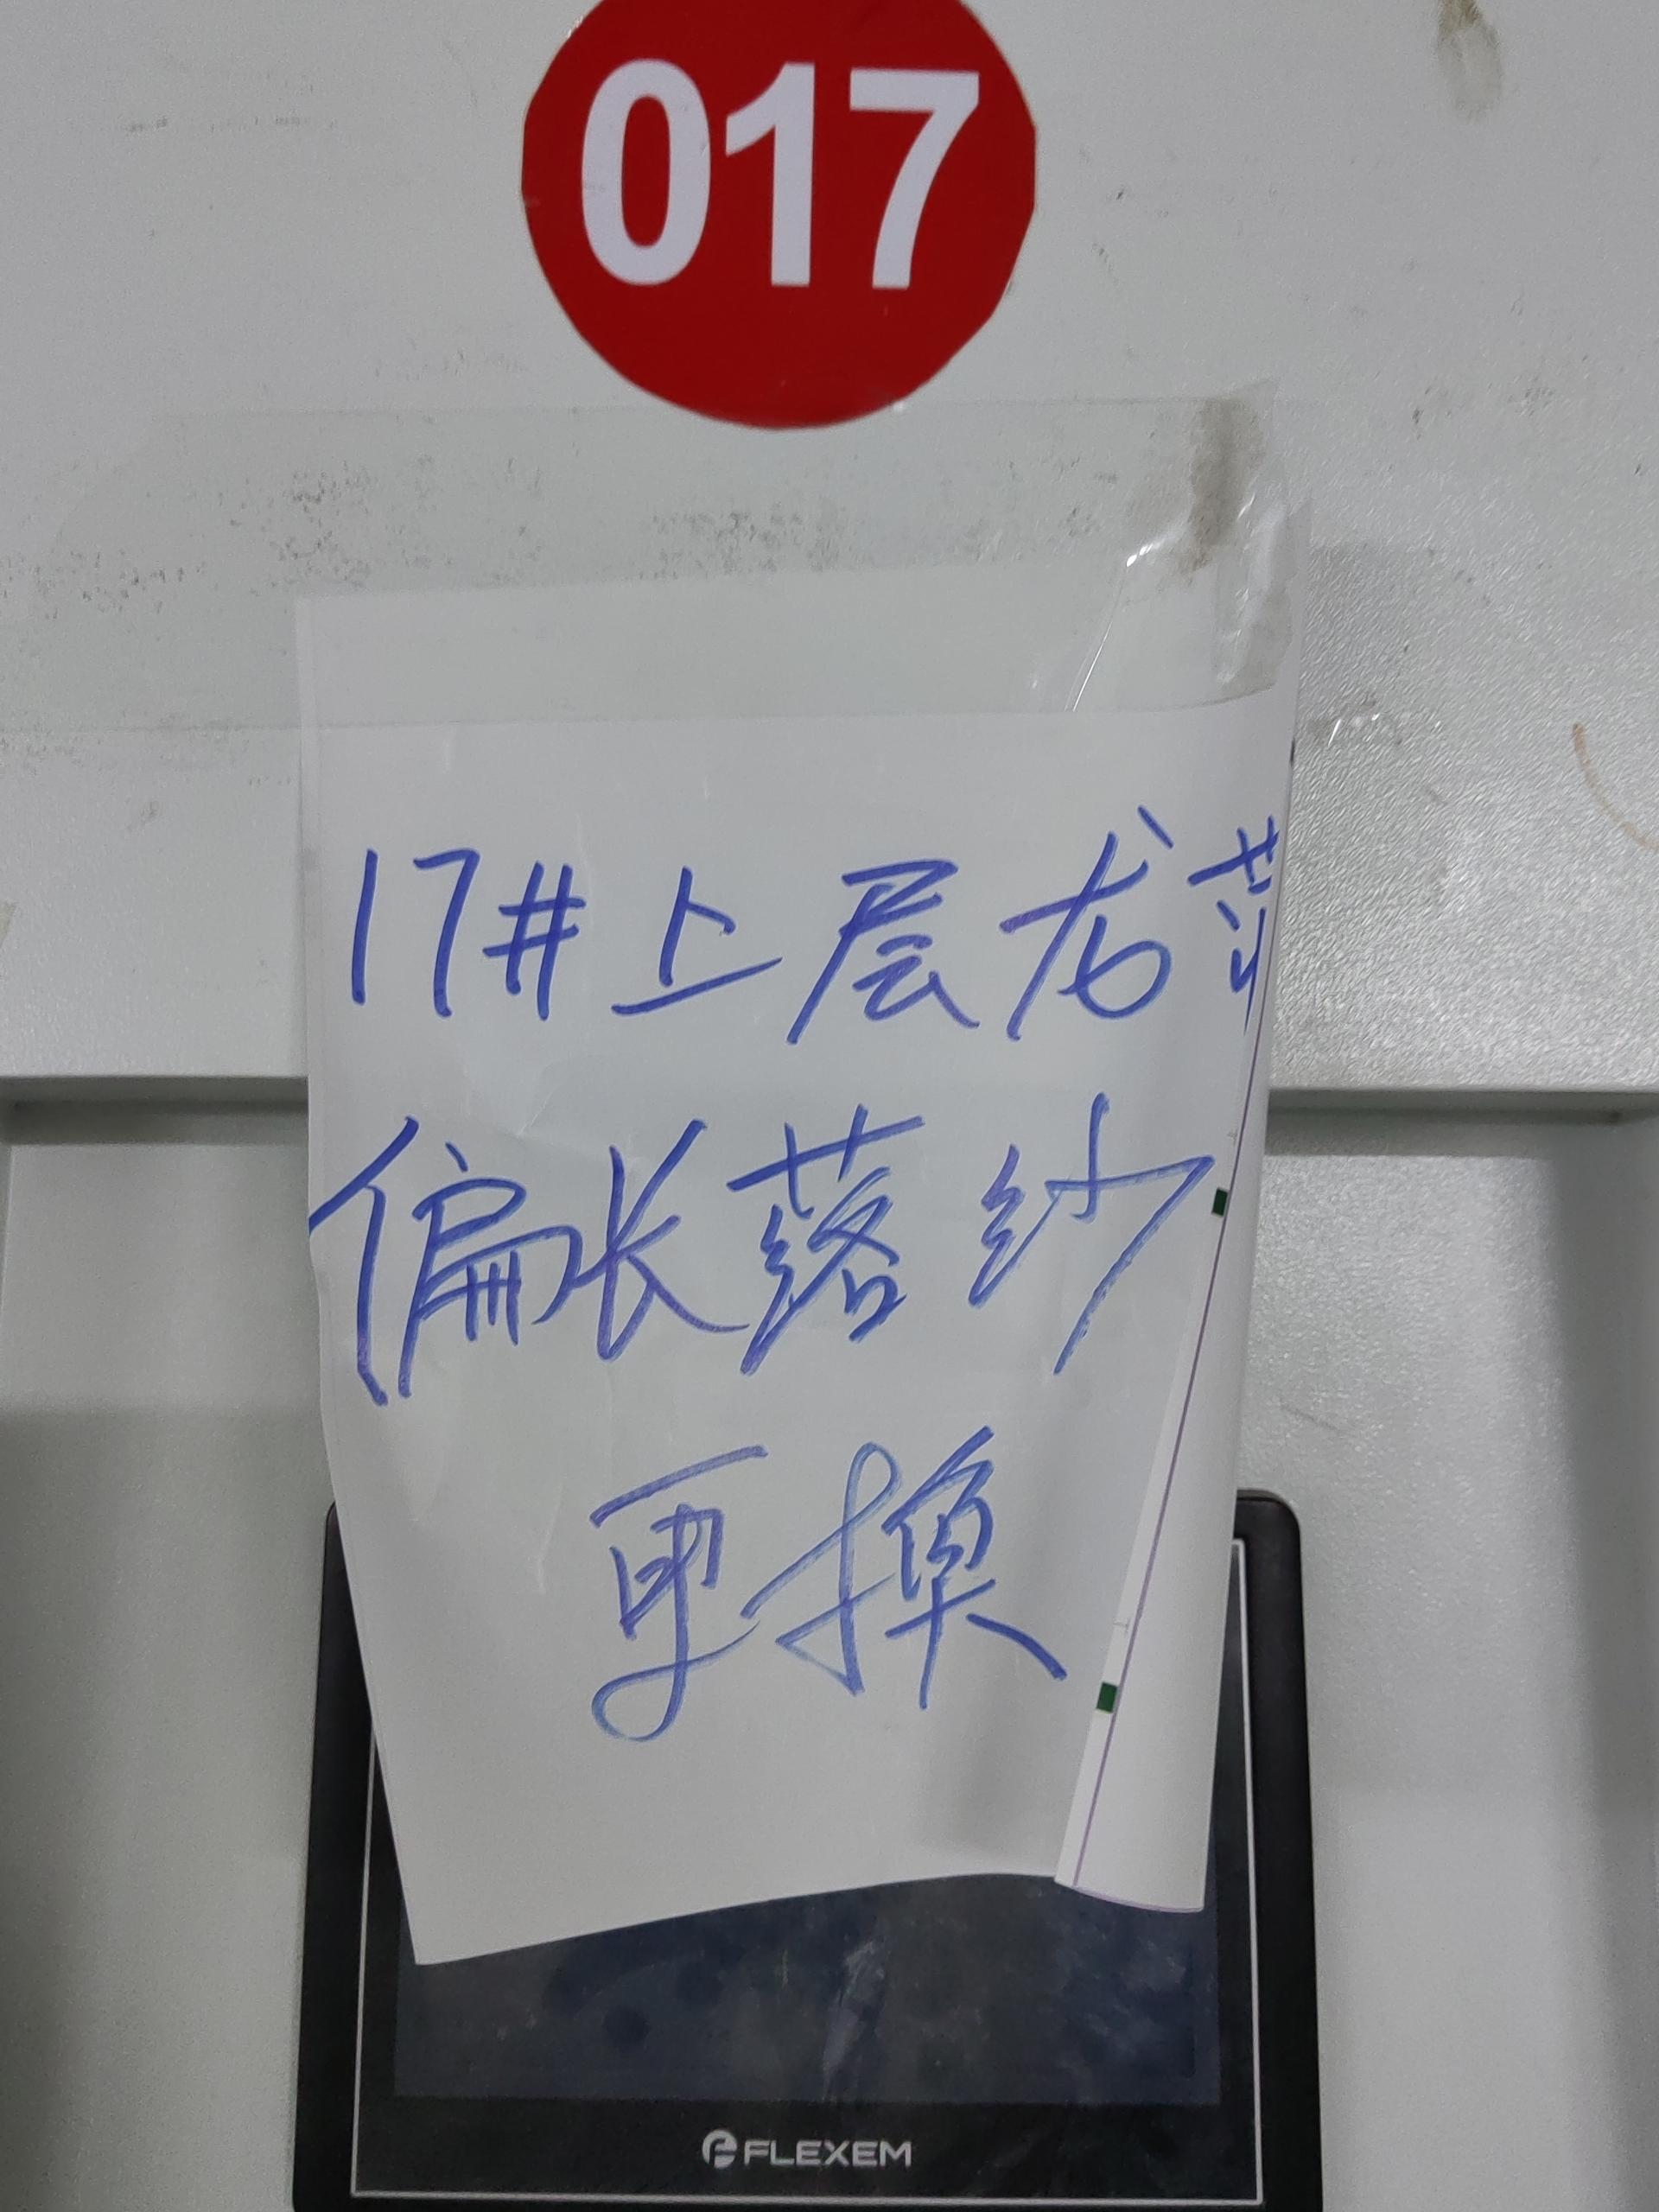 017
17#上层龙带
偏长落纱
更换
FLEXEM